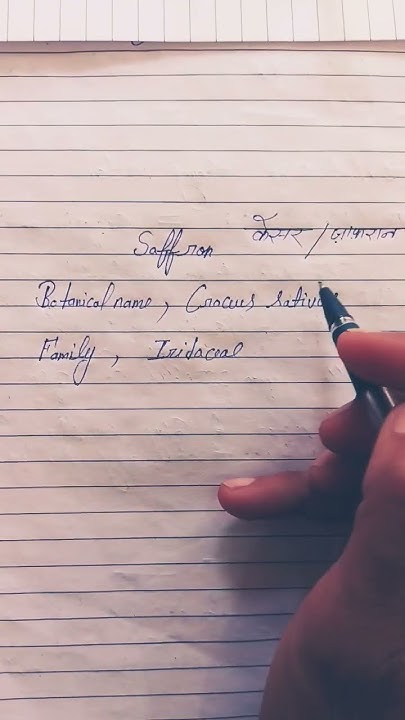 Saffron केसर / ज़ाफरान
Botanical name, Crocus sativus
Family, Iridaceae